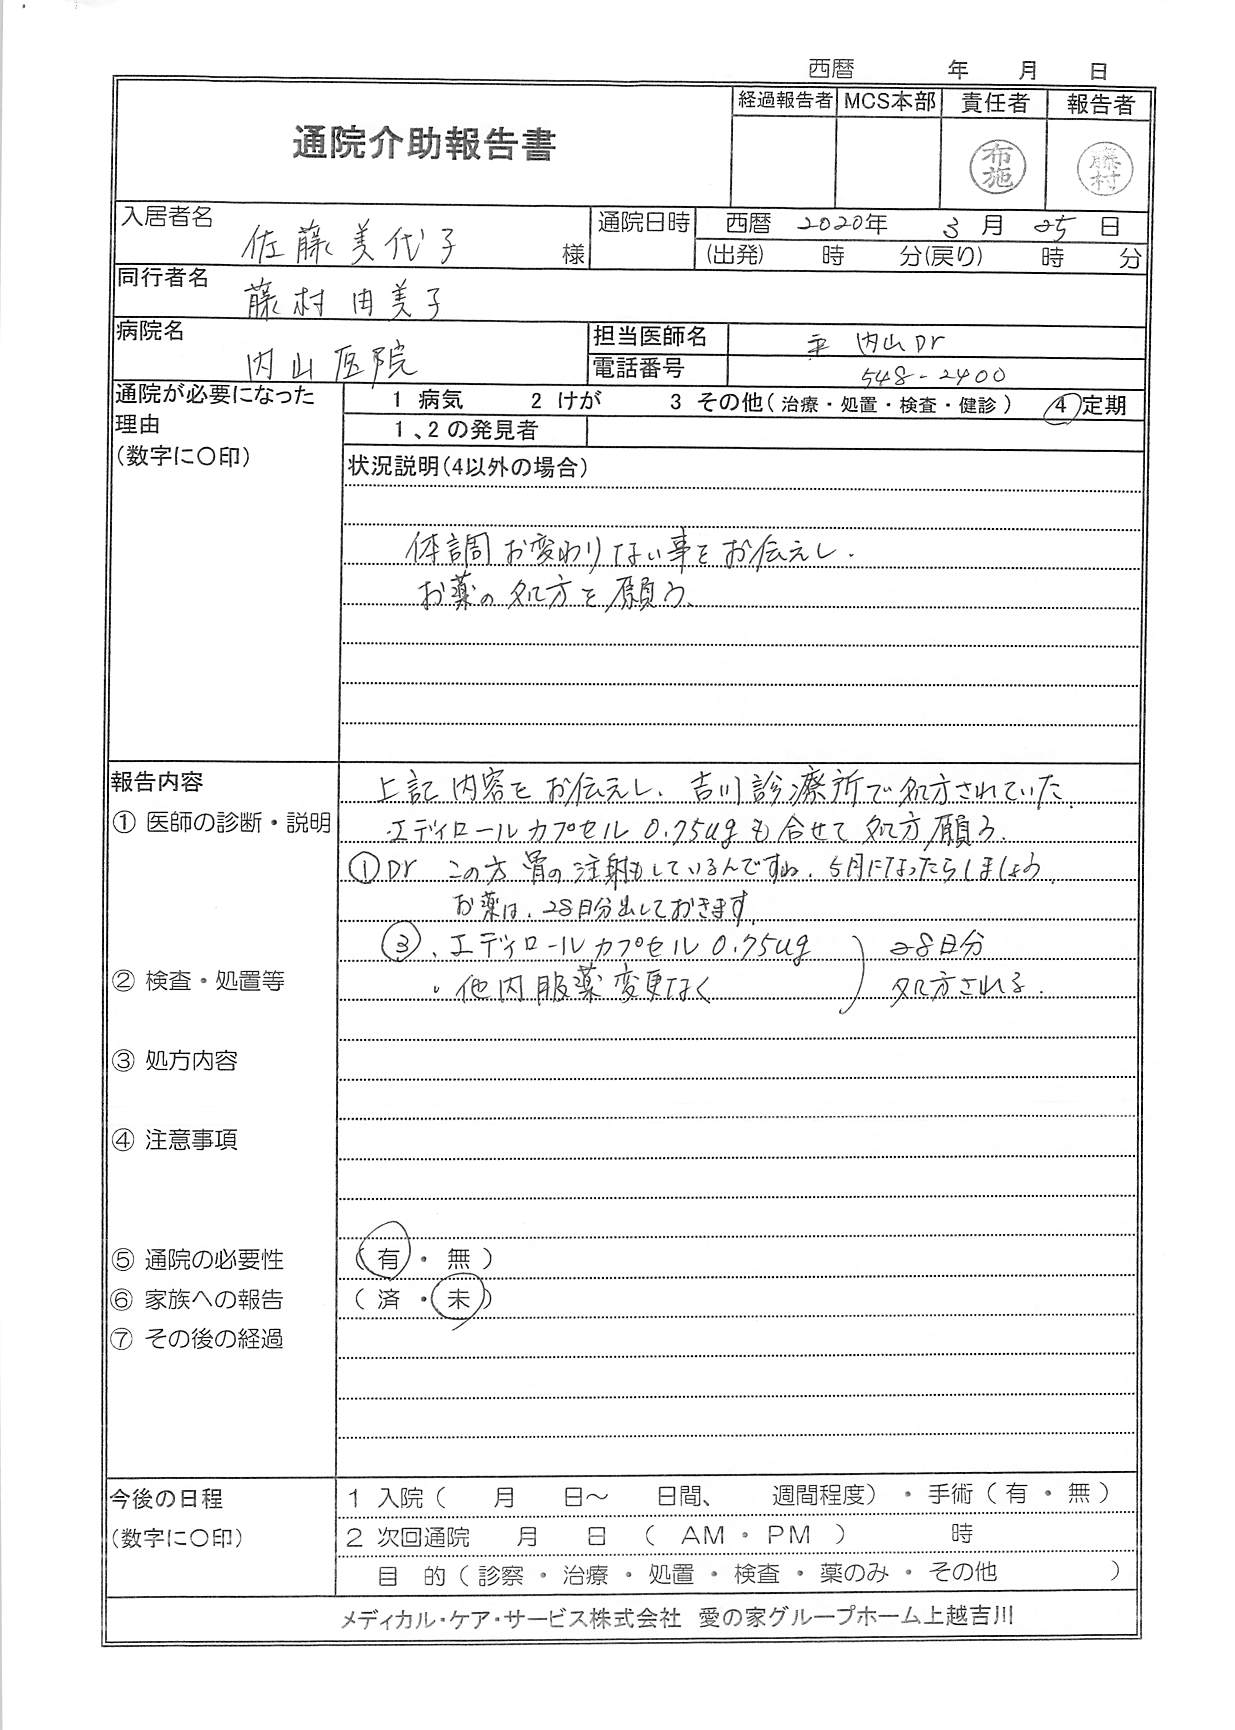 西暦　　　年　　月　　日
通院介助報告書
経過報告者 MCS本部 責任者 報告者
布施 藤村
入居者名 佐藤美代子 様 通院日時 西暦 2020年 3月 25日
(出発) 時 分(戻り) 時 分
同行者名 藤村由美子
病院名 内山医院 担当医師名 内山Dr
電話番号 548-2400
通院が必要になった理由
(数字に〇印)
1 病気 2 けが 3 その他(治療・処置・検査・健診) ④定期
1、2の発見者
状況説明(4以外の場合)
体調お変わりない事をお伝えし、
お薬の処方を願う、
報告内容 上記内容をお伝えし、吉川診療所で処方されていた
① 医師の診断・説明 エディロールカプセル0.75ugも合せて処方願う、
①Dr この方骨の注射もしているんですね、5月になったらしましょう
お薬は、28日分出しておきます、
③、エディロールカプセル0.75ug ) 28日分
② 検査・処置等 ・他内服薬変更なく ) 処方される.
③ 処方内容
④ 注意事項
⑤ 通院の必要性 (有・無)
⑥ 家族への報告 (済・未)
⑦ その後の経過
今後の日程 1 入院( 月 日～ 日間、 週間程度)・手術(有・無)
(数字に〇印) 2 次回通院 月 日 ( AM・PM ) 時
目 的(診察・治療・処置・検査・薬のみ・その他 )
メディカル・ケア・サービス株式会社 愛の家グループホーム上越吉川